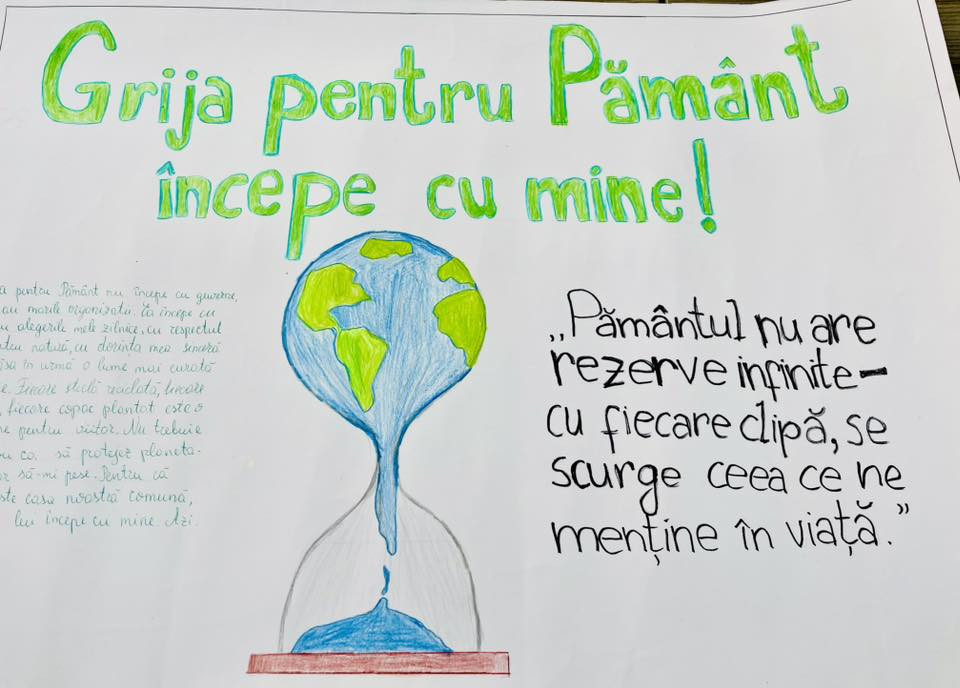 Grija pentru Pământ
începe cu mine!
pentru Pământ nu începe cu guverne,
sau marile organizații. Ea începe cu
alegerile mele zilnice, cu respectul
natură, cu dorința mea sinceră
în urmă o lume mai curată
Fiecare sticlă reciclată, fiecare
fiecare copac plantat este o
pentru viitor. Nu trebuie
ca să protejez planeta-
să-mi pese. Pentru că
casa noastră comună,
începe cu mine. Azi.
„Pământul nu are
rezerve infinite-
cu fiecare clipă, se
scurge ceea ce ne
menține în viață.”